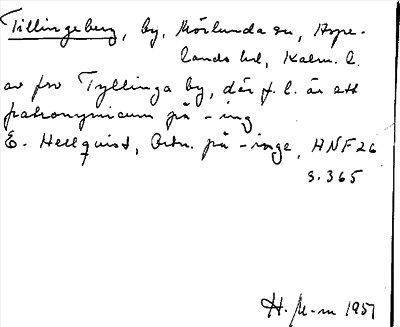 Tillingeberg, by, Mörlunda sn, Aspe-
lands hd, Kalm. l.
av fsv Tyllinga by, där f. l. är ett
patronymicum på -ing
E. Hellquist, Ortn. på -inge, ANF 26
s. 365
H. M-m 1951